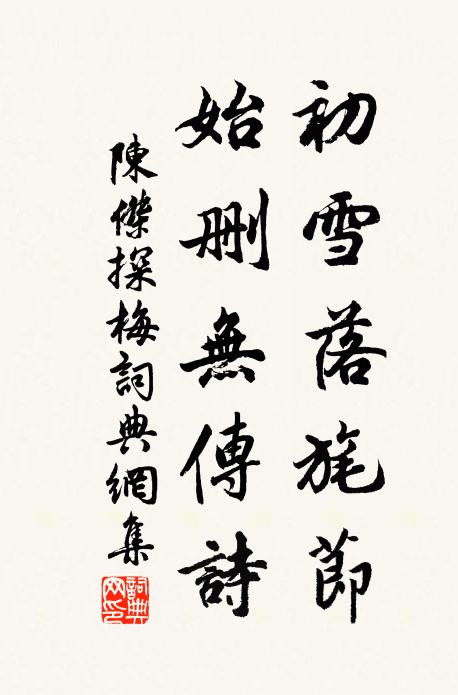 初雪落旄節
始刪無傳詩
陳傑探梅詞典網集
詞典網印